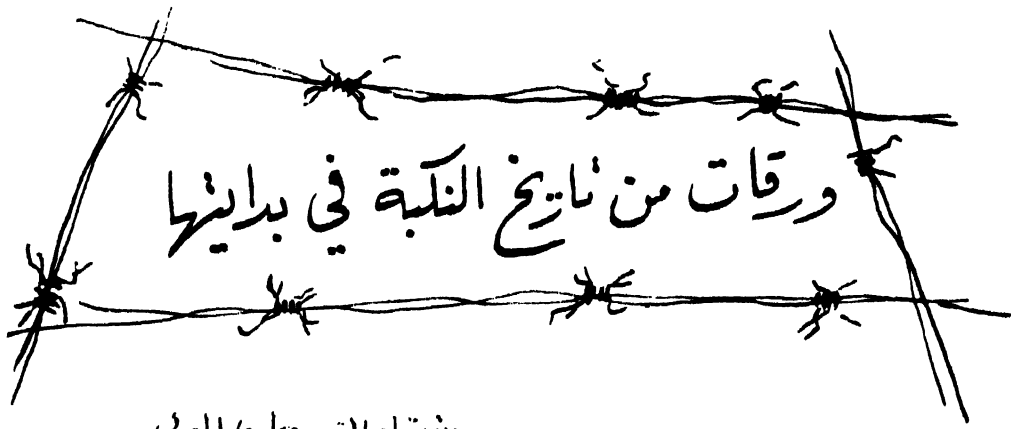 ورقات من تاريخ النكبة في بدايتها